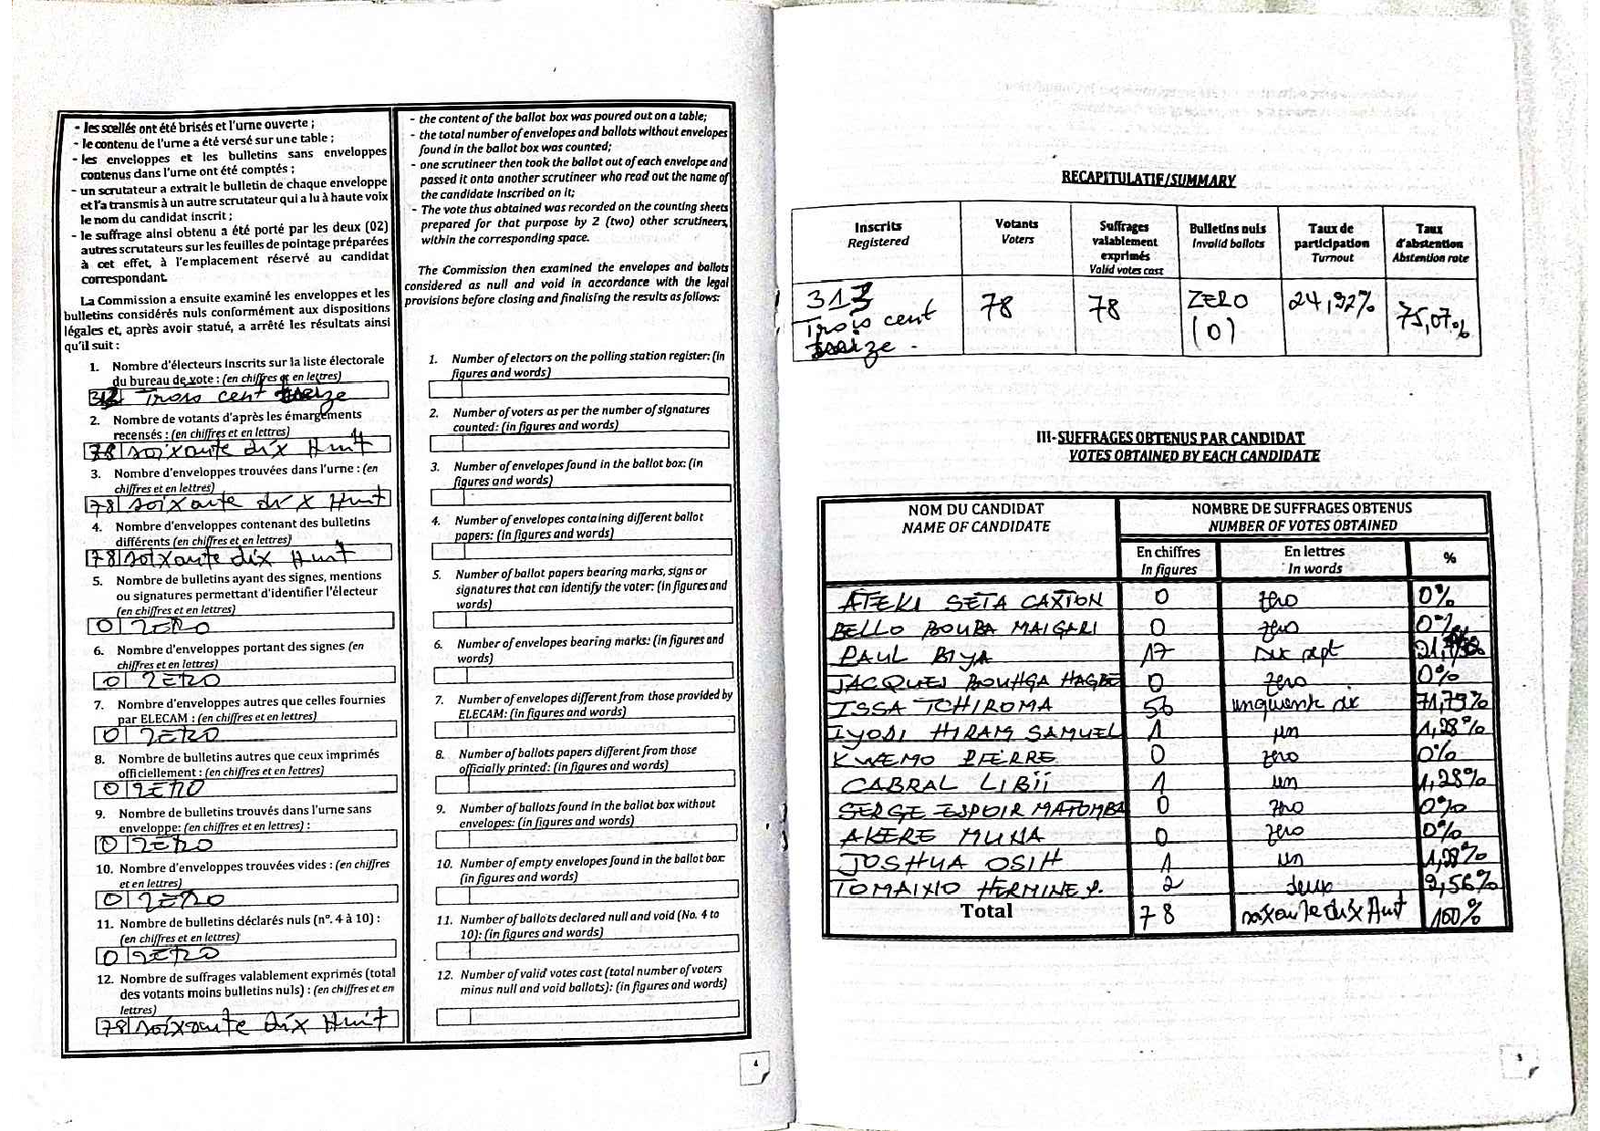 - les scellés ont été brisés et l'urne ouverte ;
- le contenu de l'urne a été versé sur une table ;
- les enveloppes et les bulletins sans enveloppes
contenus dans l'urne ont été comptés ;
- un scrutateur a extrait le bulletin de chaque enveloppe
et l'a transmis à un autre scrutateur qui a lu à haute voix
le nom du candidat inscrit ;
- le suffrage ainsi obtenu a été porté par les deux (02)
autres scrutateurs sur les feuilles de pointage préparées
à cet effet, à l'emplacement réservé au candidat
correspondant.
La Commission a ensuite examiné les enveloppes et les
bulletins considérés nuls conformément aux dispositions
légales et, après avoir statué, a arrêté les résultats ainsi
qu'il suit :
1. Nombre d'électeurs inscrits sur la liste électorale
du bureau de vote : (en chiffres et en lettres)
Trois cent treize
2. Nombre de votants d'après les émargements
recensés : (en chiffres et en lettres)
78 soixante dix Huit
3. Nombre d'enveloppes trouvées dans l'urne : (en
chiffres et en lettres)
78 soixante dix Huit
4. Nombre d'enveloppes contenant des bulletins
différents (en chiffres et en lettres)
78 soixante dix Huit
5. Nombre de bulletins ayant des signes, mentions
ou signatures permettant d'identifier l'électeur
(en chiffres et en lettres)
0 ZERO
6. Nombre d'enveloppes portant des signes (en
chiffres et en lettres)
0 ZERO
7. Nombre d'enveloppes autres que celles fournies
par ELECAM : (en chiffres et en lettres)
0 ZERO
8. Nombre de bulletins autres que ceux imprimés
officiellement : (en chiffres et en lettres)
0 ZERO
9. Nombre de bulletins trouvés dans l'urne sans
enveloppe: (en chiffres et en lettres) :
0 ZERO
10. Nombre d'enveloppes trouvées vides : (en chiffres
et en lettres)
0 ZERO
11. Nombre de bulletins déclarés nuls (n°. 4 à 10) :
(en chiffres et en lettres)
0 ZERO
12. Nombre de suffrages valablement exprimés (total
des votants moins bulletins nuls) : (en chiffres et en
lettres)
78 soixante dix Huit
- the content of the ballot box was poured out on a table;
- the total number of envelopes and ballots without envelopes
found in the ballot box was counted;
- one scrutineer then took the ballot out of each envelope and
passed it onto another scrutineer who read out the name of
the candidate inscribed on it;
- The vote thus obtained was recorded on the counting sheets
prepared for that purpose by 2 (two) other scrutineers,
within the corresponding space.
The Commission then examined the envelopes and ballots
considered as null and void in accordance with the legal
provisions before closing and finalising the results as follows:
1. Number of electors on the polling station register: (in
figures and words)
2. Number of voters as per the number of signatures
counted: (in figures and words)
3. Number of envelopes found in the ballot box: (in
figures and words)
4. Number of envelopes containing different ballot
papers: (in figures and words)
5. Number of ballot papers bearing marks, signs or
signatures that can identify the voter: (in figures and
words)
6. Number of envelopes bearing marks: (in figures and
words)
7. Number of envelopes different from those provided by
ELECAM: (in figures and words)
8. Number of ballots papers different from those
officially printed: (in figures and words)
9. Number of ballots found in the ballot box without
envelopes: (in figures and words)
10. Number of empty envelopes found in the ballot box:
(in figures and words)
11. Number of ballots declared null and void (No. 4 to
10): (in figures and words)
12. Number of valid votes cast (total number of voters
minus null and void ballots): (in figures and words)
4
RECAPITULATIF/SUMMARY
Inscrits Votants Suffrages Bulletins nuls Taux de Taux
Registered Voters valablement Invalid ballots participation d'abstention
exprimés Turnout Abstention rate
Valid votes cast
313 78 78 ZERO 24,92% 75,07%
Trois cent (0)
treize.
III- SUFFRAGES OBTENUS PAR CANDIDAT
VOTES OBTAINED BY EACH CANDIDATE
NOM DU CANDIDAT NOMBRE DE SUFFRAGES OBTENUS
NAME OF CANDIDATE NUMBER OF VOTES OBTAINED
En chiffres En lettres %
In figures In words
ATEKI SETA CAXTON 0 zero 0%
BELLO BOUBA MAIGARI 0 zero 0%
PAUL BIYA 17 Dix sept
JACQUES BOUHGA HAGBE 0 zero 0%
ISSA TCHIROMA 56 cinquante six 71,79%
IYODI HIRAM SAMUEL 1 un 1,28%
KWEMO PIERRE 0 zero 0%
CABRAL LIBII 1 un 1,28%
SERGE ESPOIR MATOMBA 0 zero 0%
AKERE MUNA 0 zero 0%
JOSHUA OSIH 1 un 1,28%
TOMAINO HERMINE P. 2 deux 2,56%
Total 78 soixante dix Huit 100%